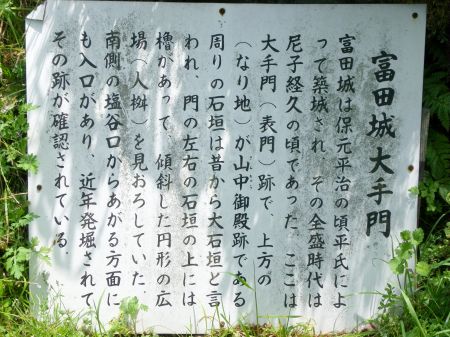 富田城大手門
富田城は保元平治の頃平氏によ
って築城され、その全盛時代は
尼子経久の頃であった。ここは
大手門(表門)跡で、上方の
(なり地)が山中御殿跡である
周りの石垣は昔から大石垣と言
われ、門の左右の石垣の上には
櫓があって、傾斜した円形の広
場(人桝)を見おろしていた。
南側の塩谷口からあがる方面に
も入口があり、近年発堀されて
その跡が確認されている。